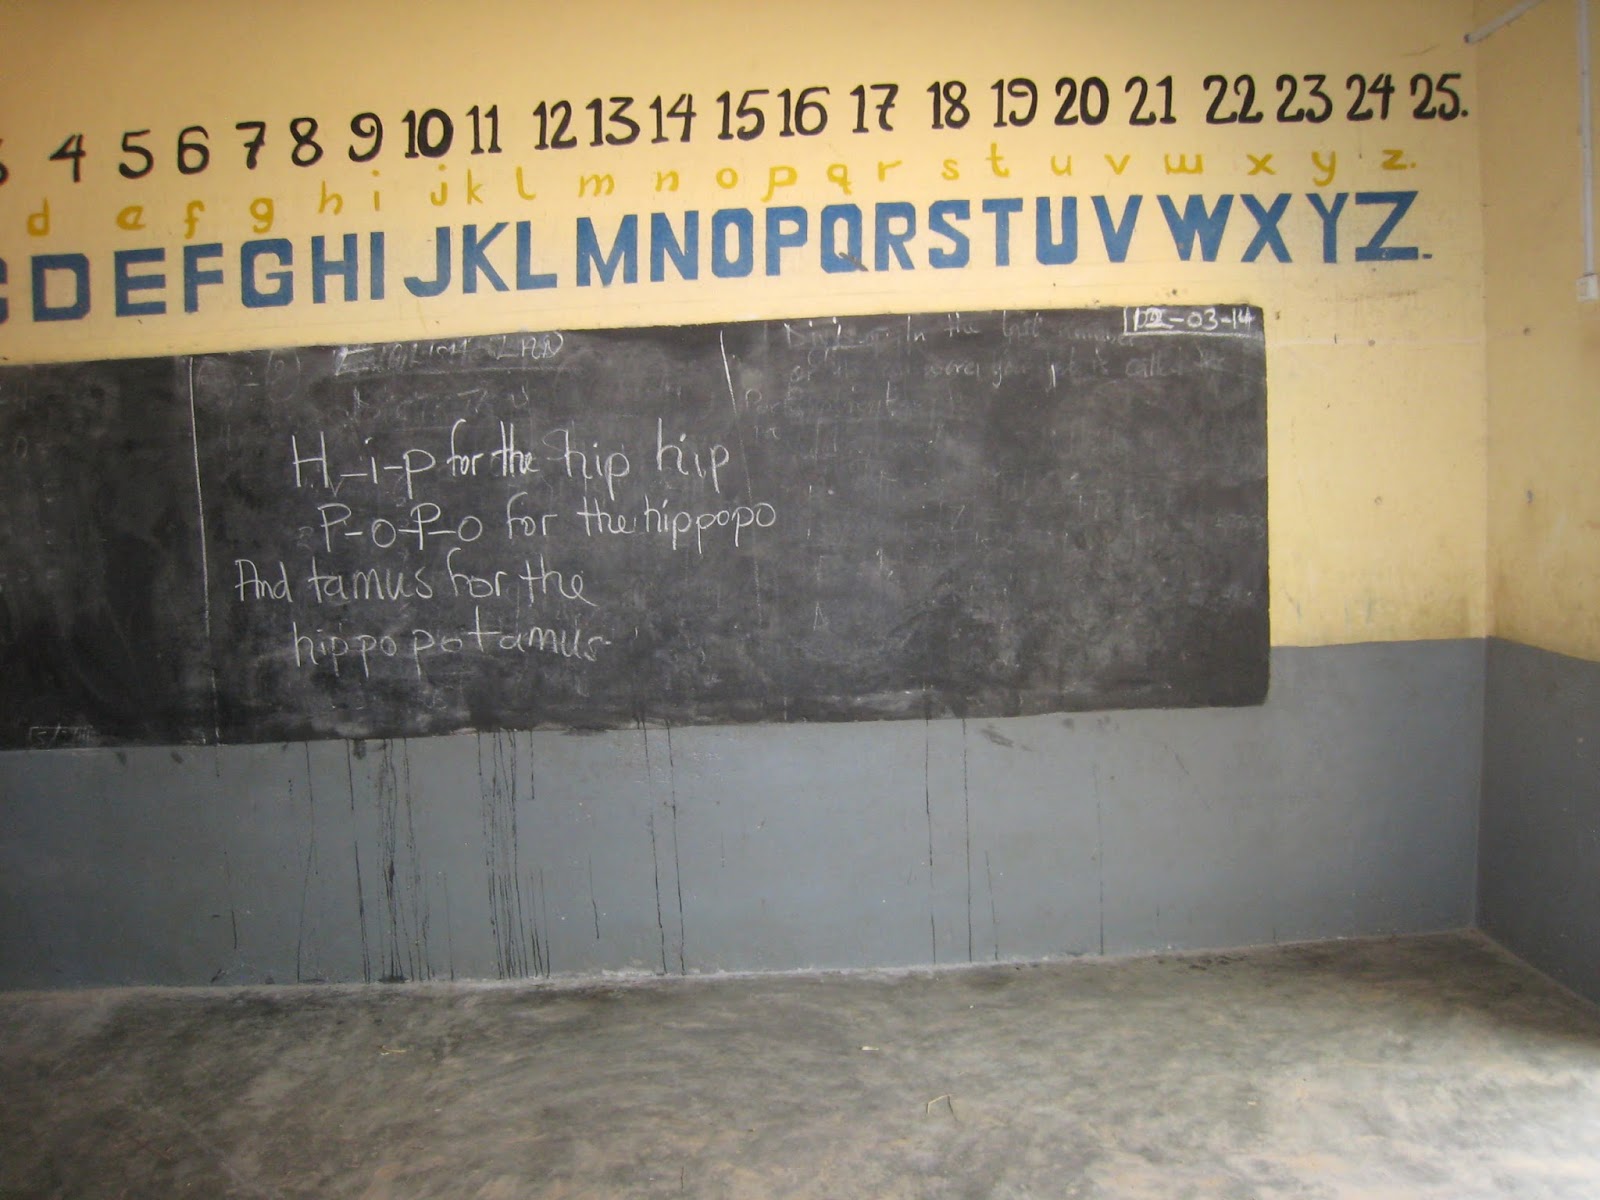 4 5 6 7 8 9 10 11 12 13 14 15 16 17 18 19 20 21 22 23 24 25.
d e f g h i j k l m n o p q r s t u v w x y z.
C D E F G H I J K L M N O P Q R S T U V W X Y Z.
-03-14
In the last
is called the
H-i-p for the hip hip
P-o-P-o for the hippopo
And tamus for the
hippopotamus.